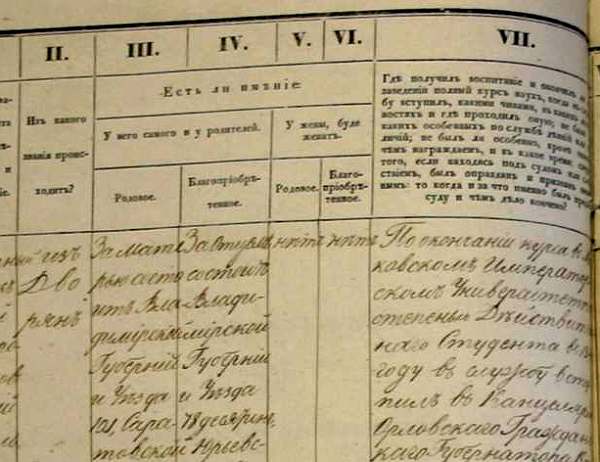 II. III. IV. V. VI. VII.
Изъ какого
званія проис-
ходитъ?
Есть ли имѣніе:
У него самого и у родителей.
У жены, буде
женатъ.
Родовое.
Благопріобрѣ-
тенное.
Родовое.
Благо-
пріобрѣ-
тенное.
Гдѣ получилъ воспитаніе и окончилъ ли
заведеніи полный курсъ наукъ, когда въ
бу вступилъ, какими чинами, въ какихъ
ностяхъ и гдѣ проходилъ оную; не было
какихъ особенныхъ по службѣ дѣяній или
личій; не былъ ли особенно, кромѣ чиновъ
чѣмъ награждаемъ, и въ какое время; сверхъ
того, если находясь подъ судомъ или слѣд-
ствіемъ, былъ оправданъ и признанъ невин-
нымъ: то когда и за что именно былъ преданъ
суду и чѣмъ дѣло кончено?
изъ
Дво
рянъ
За мате
рью состо
итъ Вла
димірской
Губерніи
и Уѣзда
101, Сара-
товской
За
состоитъ
Влади-
мірской
Губерніи
и Уѣзда
78 десятинъ
Юрьевс-
нѣтъ
нѣтъ
По окончаніи курса въ
ковскомъ Император
скомъ Университетѣ
степенью Дѣйствит
наго Студента въ
году въ службу всту
пилъ въ Канцелярію
Орловскаго Граждан
скаго Губернатора